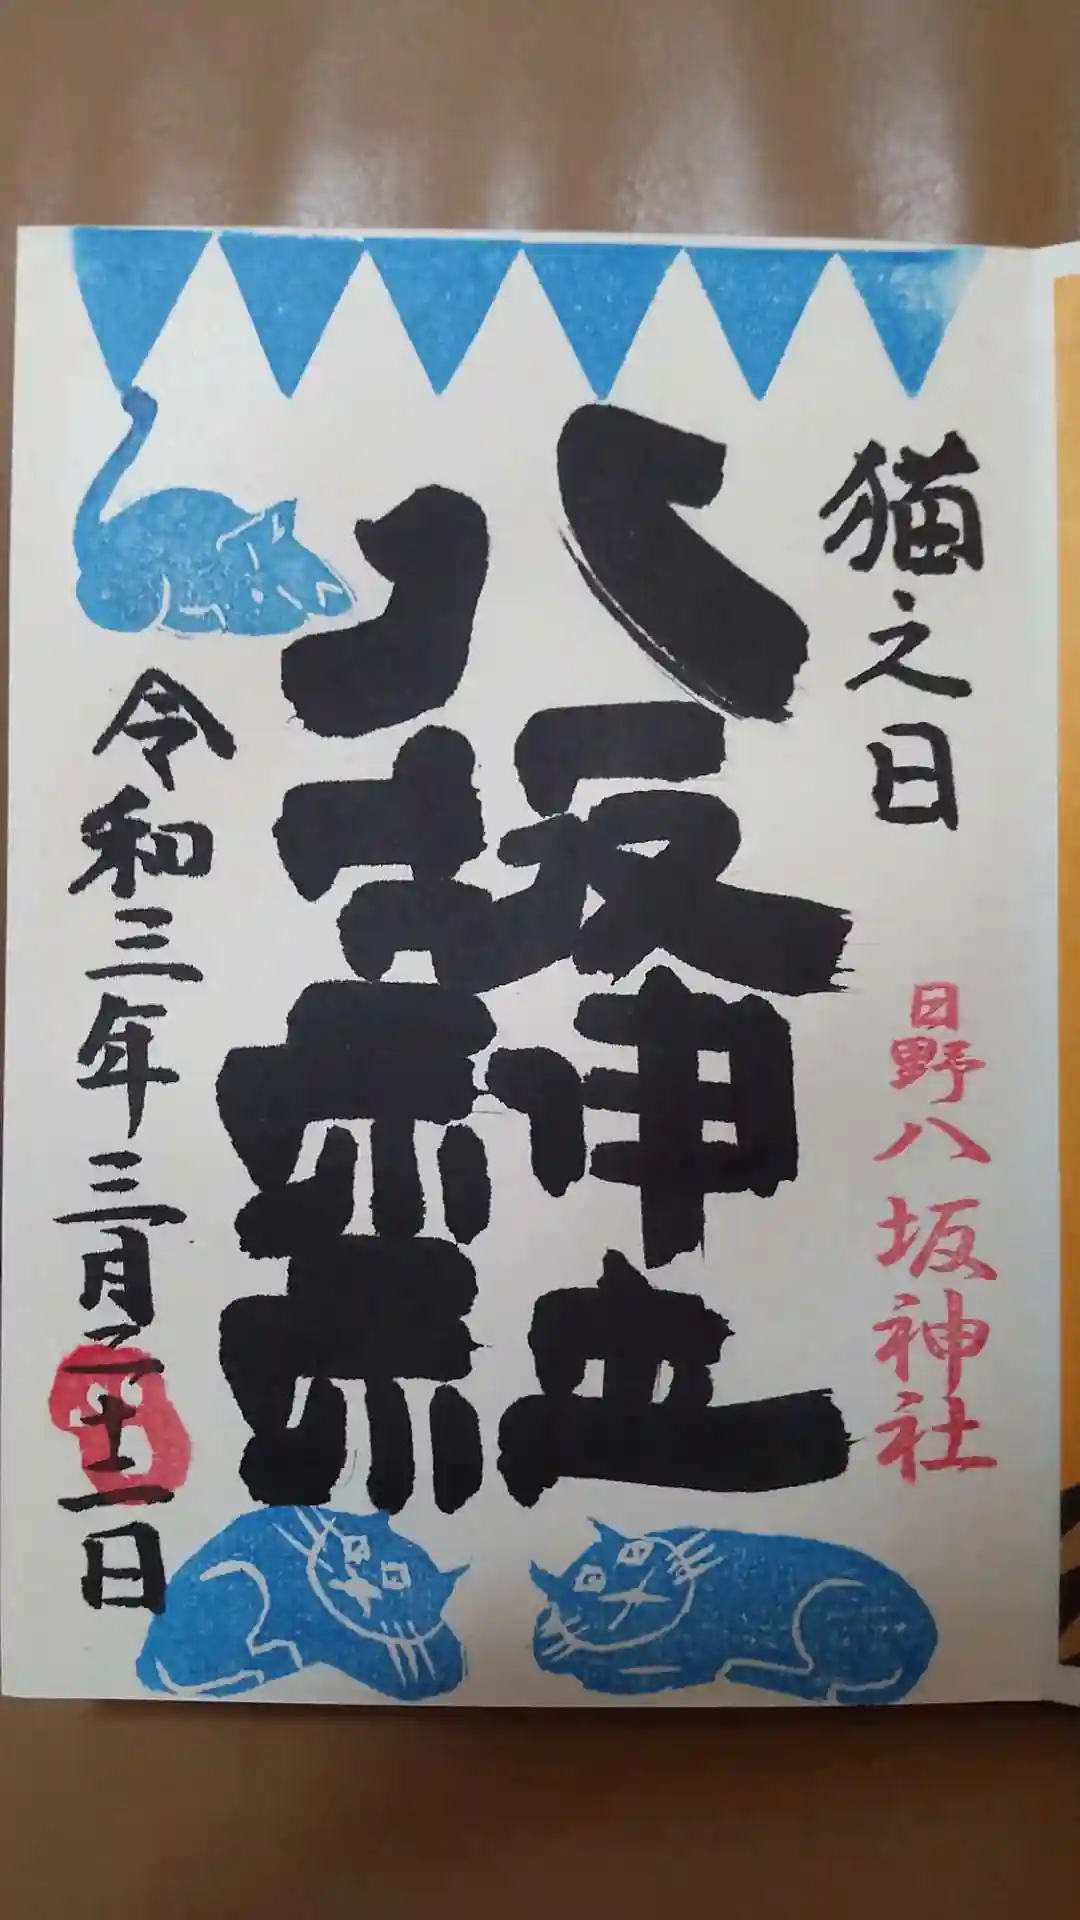 猫之日
日野八坂神社
八坂神社
令和三年三月二十二日